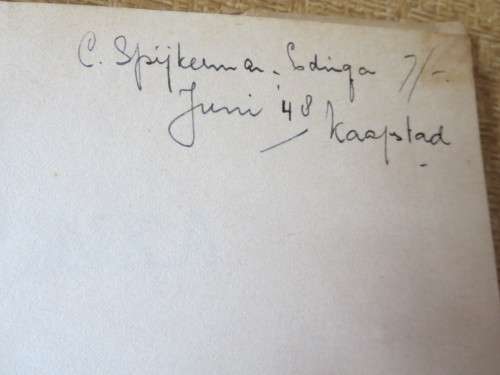 C. Spijkerman-Edinga 7/-
Juni '48
Kaapstad